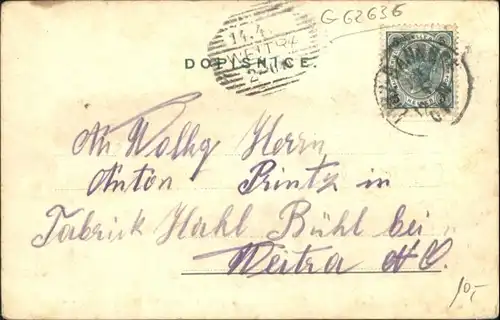 G 62636
14.4
WEITRA
DOPISNICE.
An Wolhg Herrn
Anton Printz in
Fabrick Hahl Bühl bei
Weitra N.Ö.
10,-